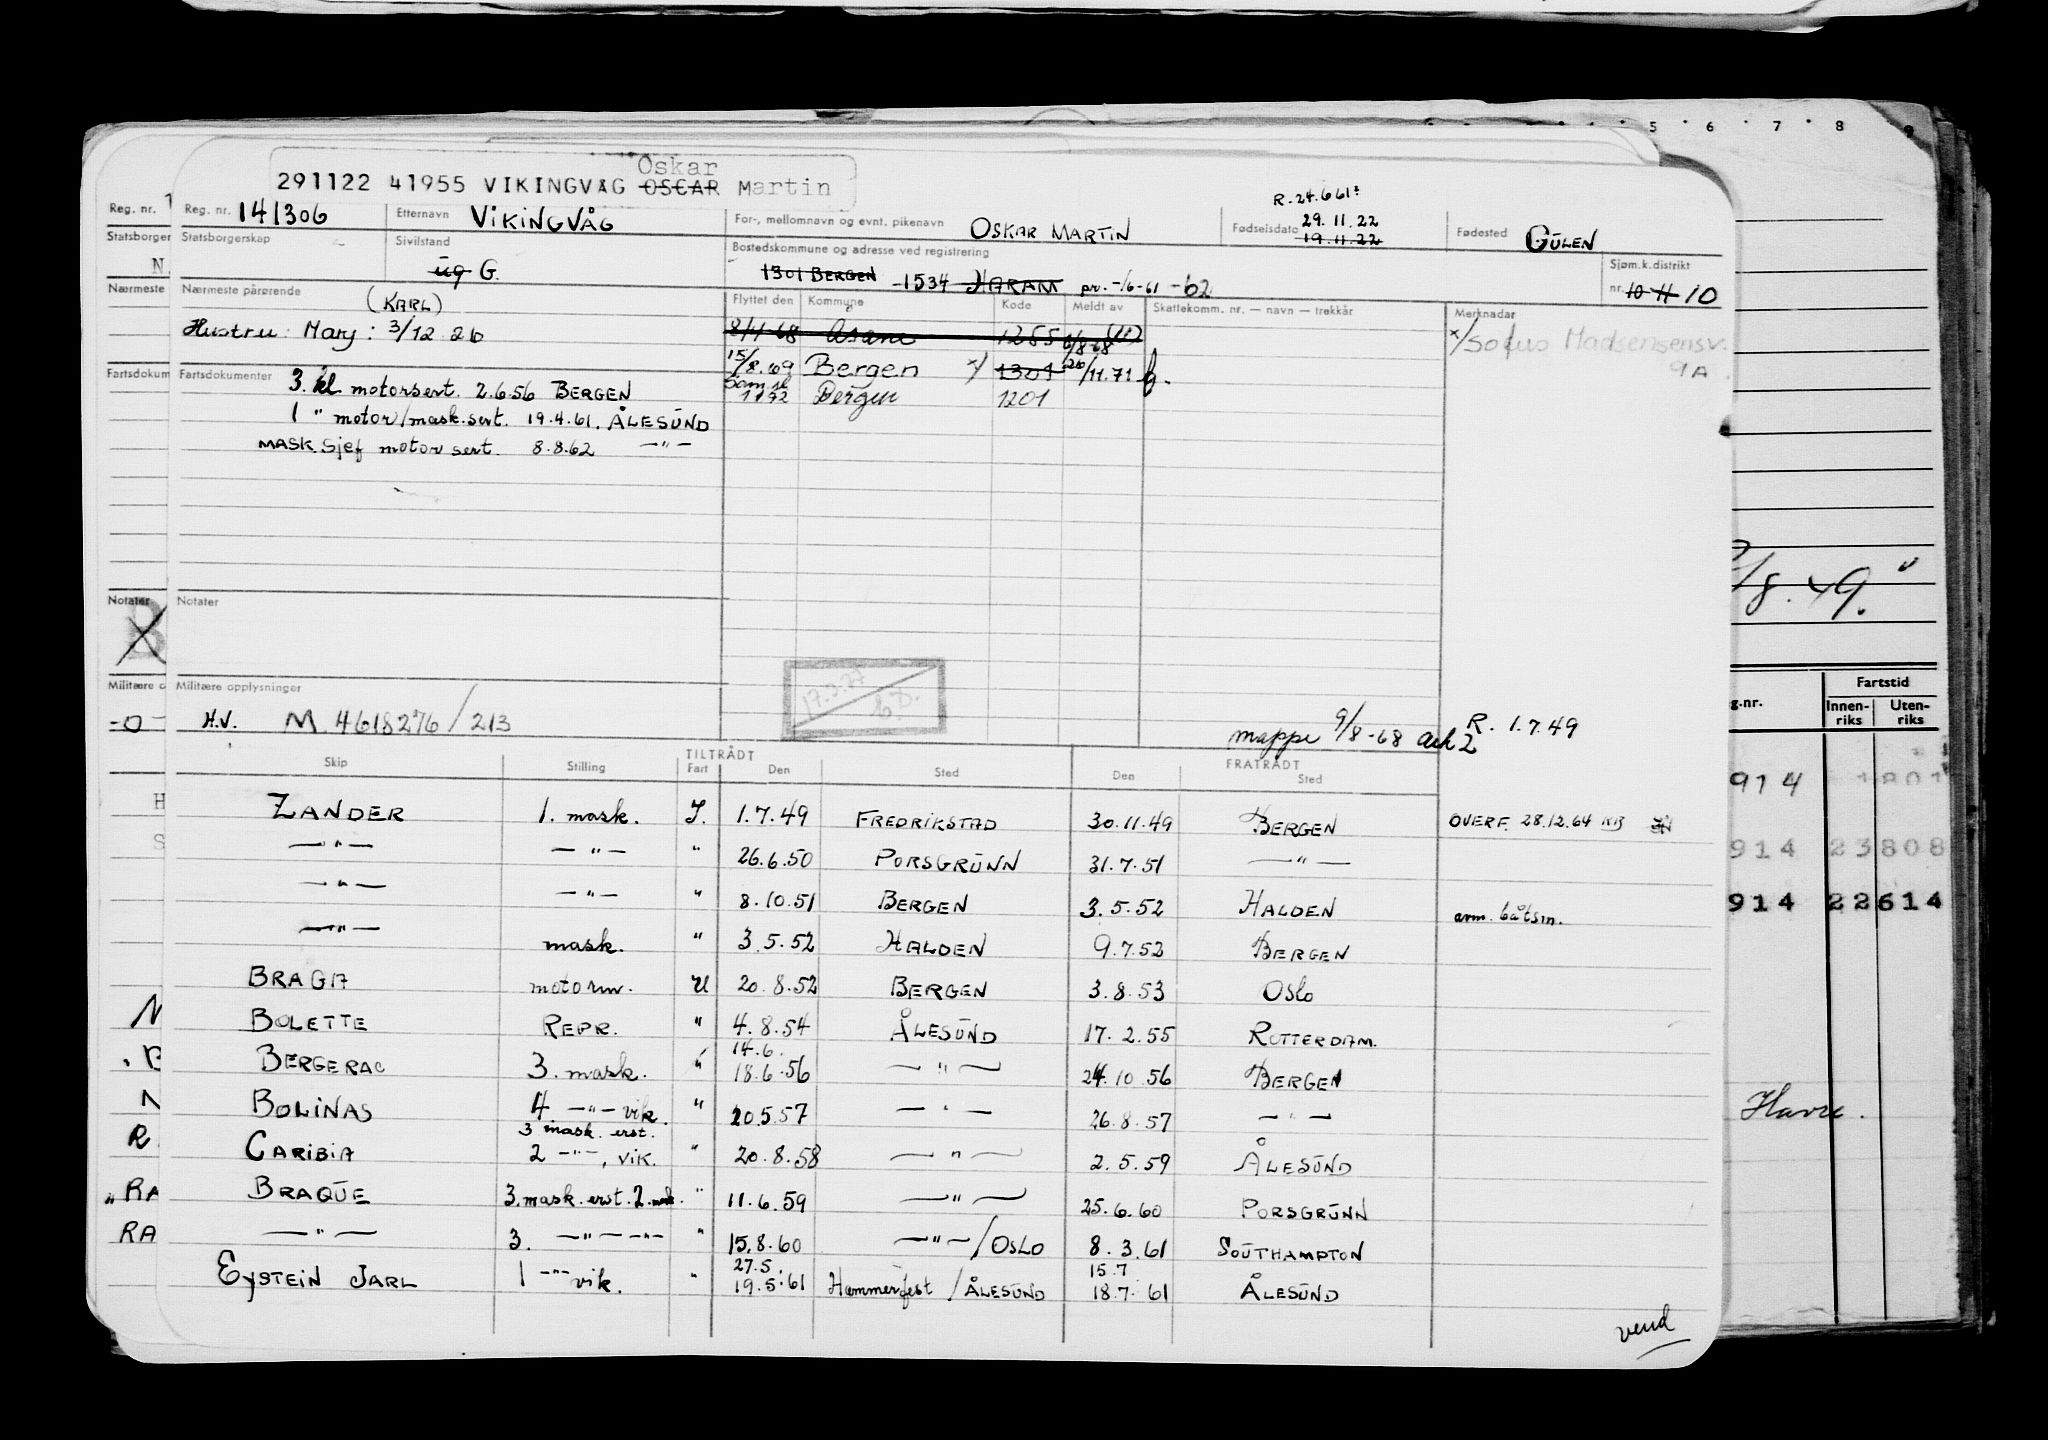 5 · 6 · 7 · 8 9
Oskar
291122 41955 VIKINGVÅG OSCAR Martin
R. 24.6 61
Reg. nr. Reg. nr. 141306 Etternavn VIKINGVÅG For-, mellomnavn og evnt. pikenavn OSKAR MARTIN Fødselsdato 29.11.22 19.11.22 Fødested GULEN
Statsborger Statsborgerskap Sivilstand ug G. Bostedskommune og adresse ved registrering 1301 BERGEN -1534 HARAM pr. -/6-61 -62 Sjøm.k.distrikt nr. 10 11 10
Nærmeste Nærmeste pårørende (KARL) Flyttet den Kommune Kode Meldt av Skattekomm. nr. — navn — trekkår Merknader
Hustru: Mary: 3/12 26 8/4-68 Åsane 1255 6/8-68 x/Sofus Madsensensv. 9A
Fartsdokum Fartsdokumenter 15/8.69 Bergen x) 1301 26/11.71
3. kl motorsert. 2.6.56 BERGEN
Bergen 1201
1 " motor/mask.sert. 19.4.61. ÅLESUND
MASK.Sjef motor sert. 8.8.62 —"—
Notater Notater
Militære o Militære opplysninger
-0- H.V. M. 4618276/213
mappe 9/8-68 Ark 2 R. 1.7.49
Skip Stilling TILTRÅDT Fart Den Sted FRATRÅDT Den Sted
ZANDER 1. mask. I. 1.7.49 FREDRIKSTAD 30.11.49 BERGEN OVERF. 28.12.64
—"— —"— " 26.6.50 PORSGRUNN 31.7.51 —"—
—"— —"— " 8.10.51 BERGEN 3.5.52 HALDEN anm. båtsm.
—"— mask. " 3.5.52 HALDEN 9.7.52 BERGEN
BRAGA motorm. U 20.8.52 BERGEN 3.8.53 OSLO
BOLETTE REPR. " 4.8.54 ÅLESUND 17.2.55 ROTTERDAM.
BERGERAC 3. mask. " 14.6. 18.6.56 —"— 24.10.56 BERGEN
BOLINAS 4 —"— vik. " 20.5.57 —"— 26.8.57 —"—
CARIBIA 3 mask. erst. 2 —"—, vik. " 20.8.58 —"— 2.5.59 ÅLESUND
BRAQUE 3. mask. erst. 2. mask. " 11.6.59 —"— 25.6.60 PORSGRUNN
—"— 3. —"— —"— " 15.8.60 —"—/OSLO 8.3.61 SOUTHAMPTON
EYSTEIN JARL 1 —"— vik. " 27.5. 19.5.61 Hammerfest /ÅLESUND 15.7 18.7.61 ÅLESUND
vend
/8.49."
g.nr. Fartstid
Innen- riks Uten- riks
914 1801
914 23808
914 22614
Havre.